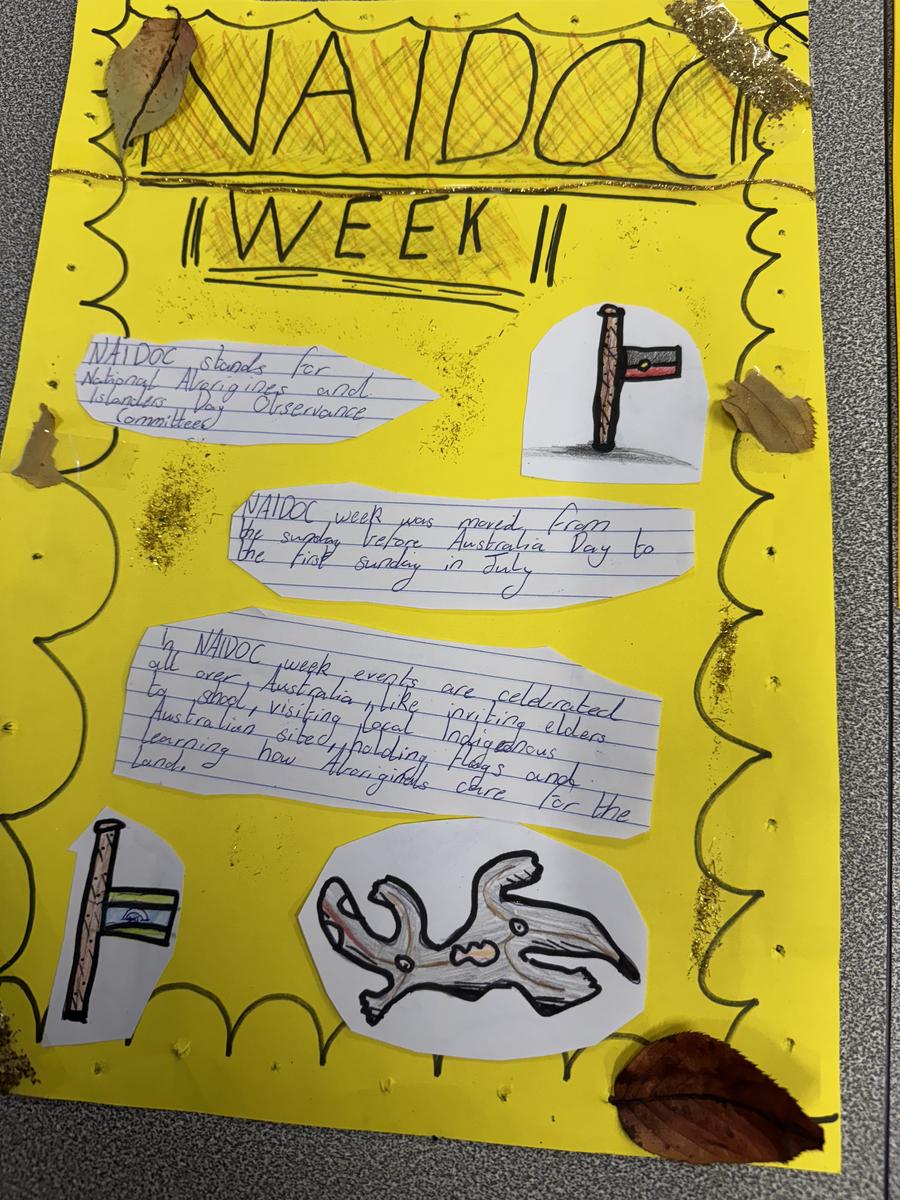 NAIDOC
WEEK
NAIDOC stands for
National Aborigines and
Islanders Day Observance
Committee
NAIDOC week was moved from
the sunday before Australia Day to
the first sunday in July
In NAIDOC week, events are celebrated
all over Australia, like inviting elders
to shool, visiting local Indigeonous
Australian sites, holding flags and
learning how Aboriginals care for the
land.